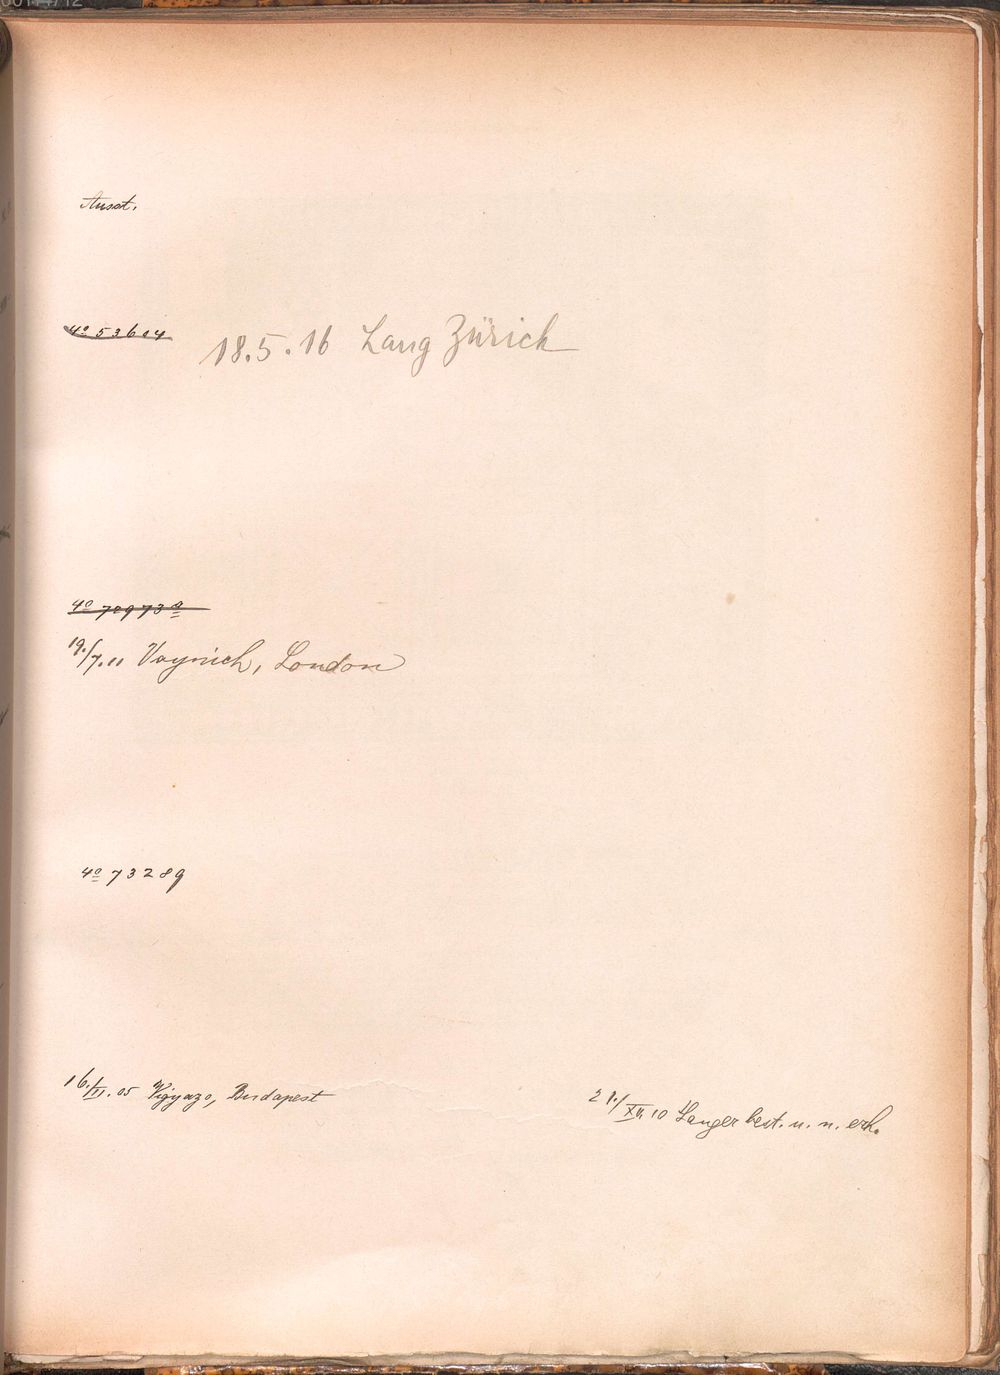 Ausst.
4º 53604
18.5.16 Lang Zürich
4º 70973 a
19./7.11 Voynich, London
4º 73289
16./II.05 Vigyazo, Budapest
21./XII.10 Langer best. u. n. erh.